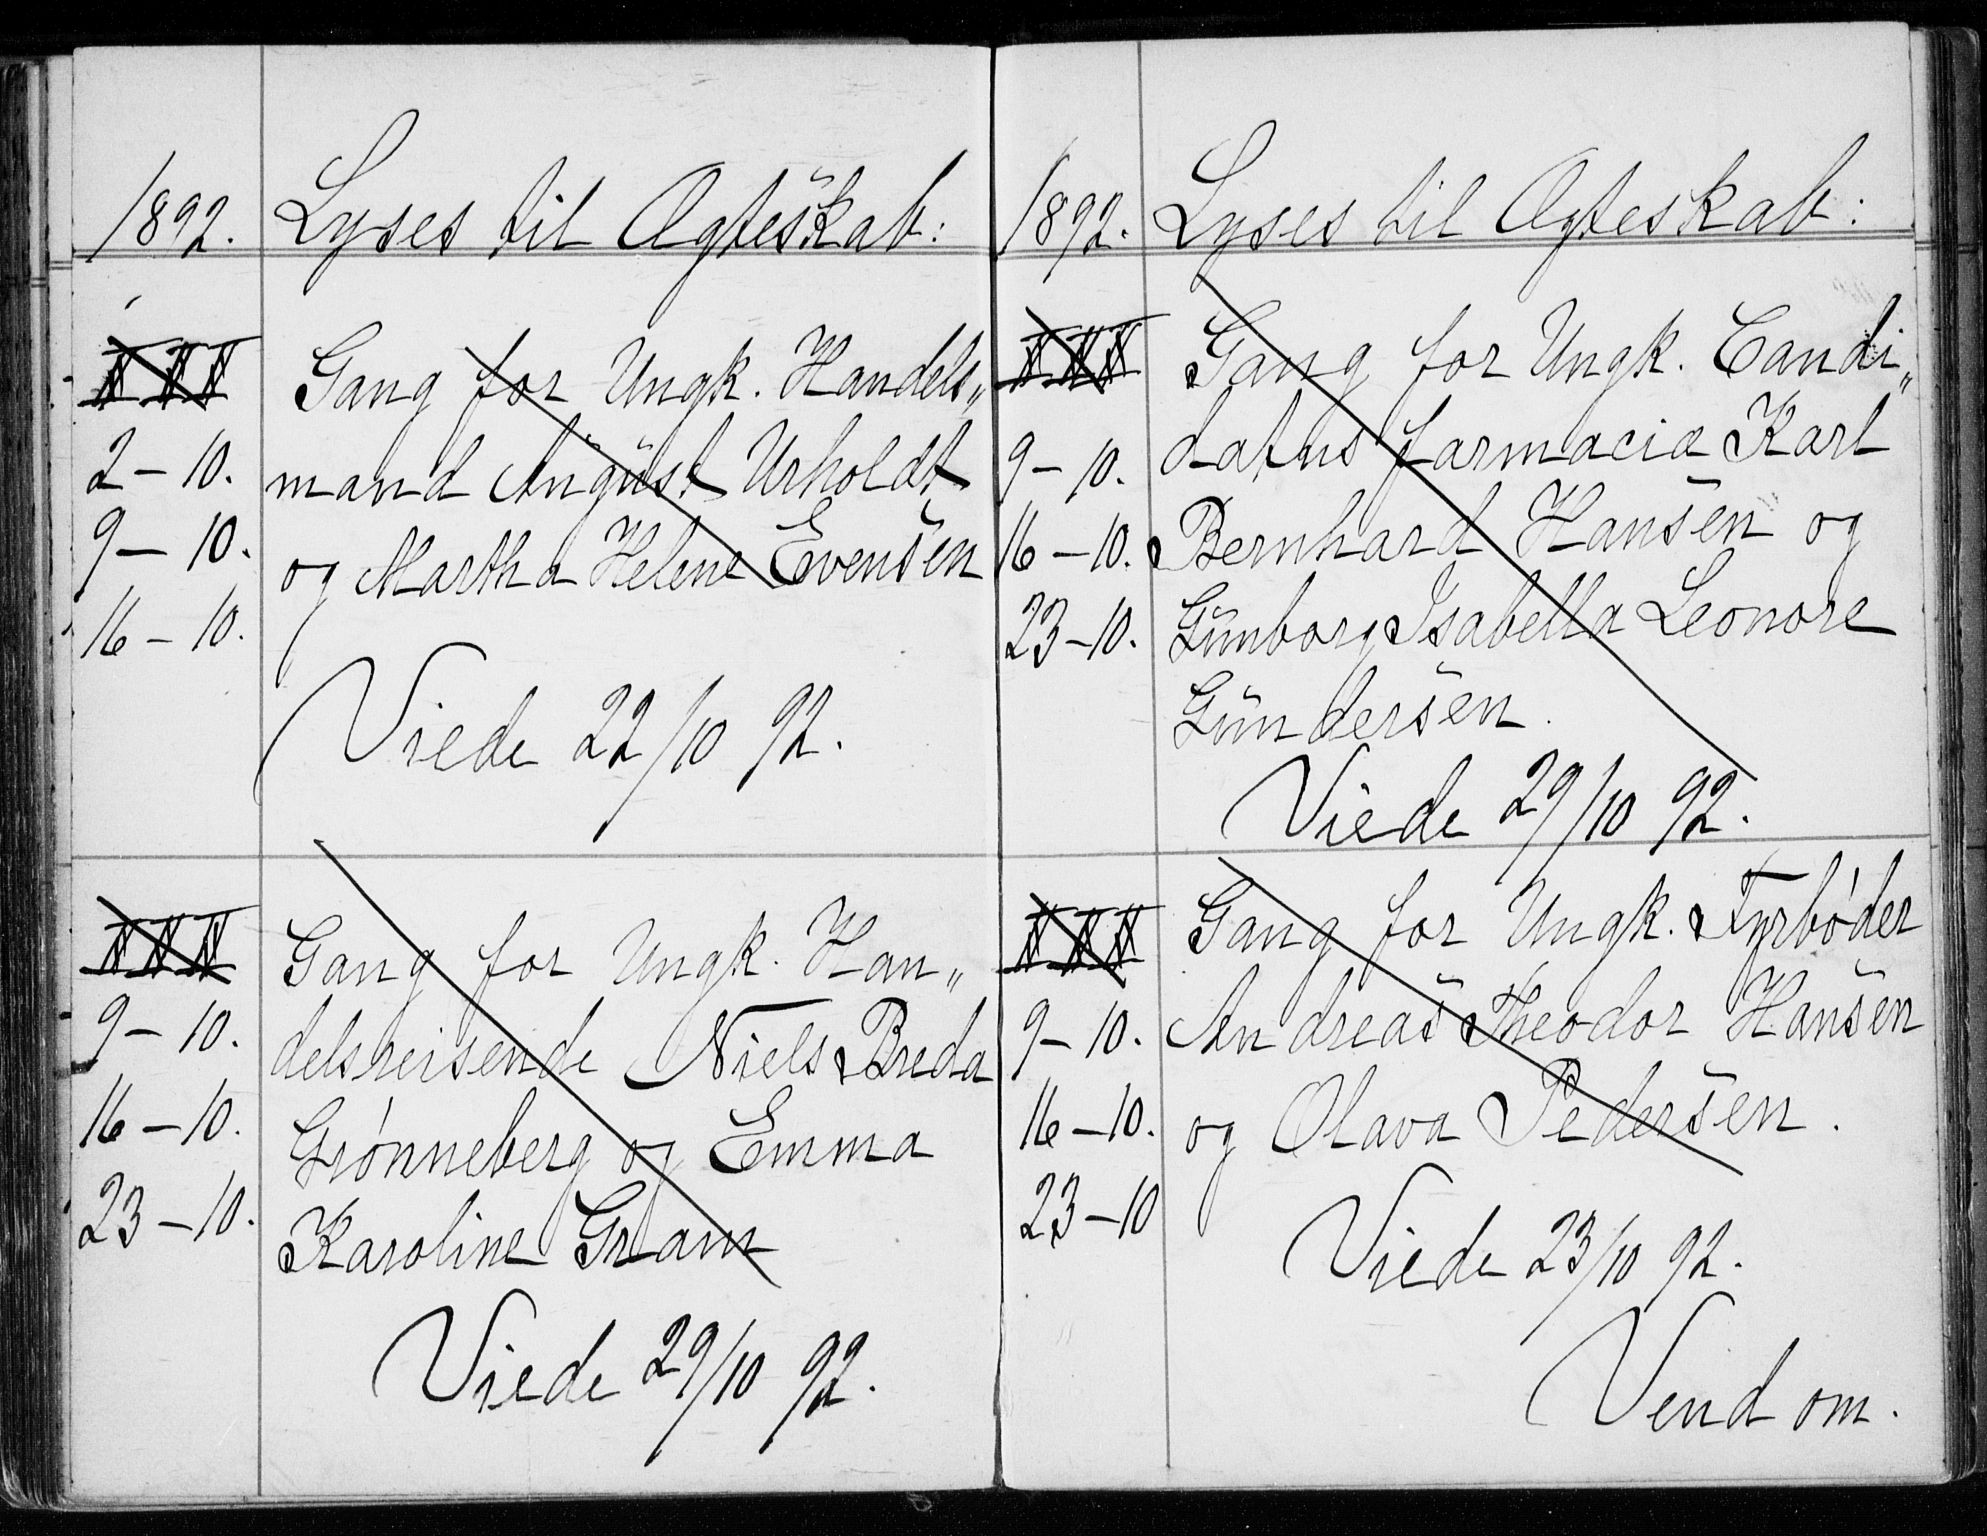 1892. Lyses til Ægteskab:
III Gang for Ungk. Handels„
2–10. mand August Urholdt
9–10. og Martha Helene Evensen
16–10.
Viede 22/10 92.
III Gang for Ungk. Han„
9–10. delsreisende Niels Breda
16–10. Grønneberg og Emma
23–10. Karoline Gram
Viede 29/10 92.
1892. Lyses til Ægteskab:
III Gang for Ungk. Candi„
9–10. datus farmacia Karl
16–10. Bernhard Hansen og
23–10. Gunborg Isabella Leonore
Gundersen.
Viede 29/10 92.
III Gang for Ungk. Fyrbøder
9–10. Andreas Theodor Hansen
16–10. og Olava Pedersen.
23–10
Viede 23/10 92.
Vend om.